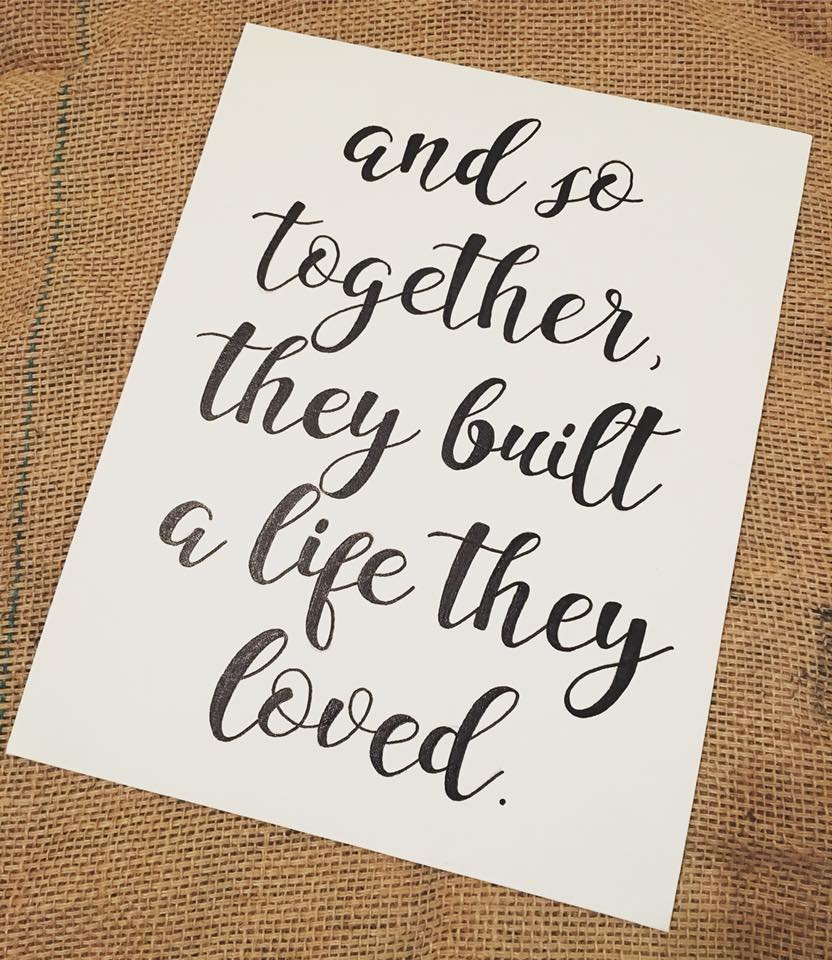 and so
together,
they built
a life they
loved.